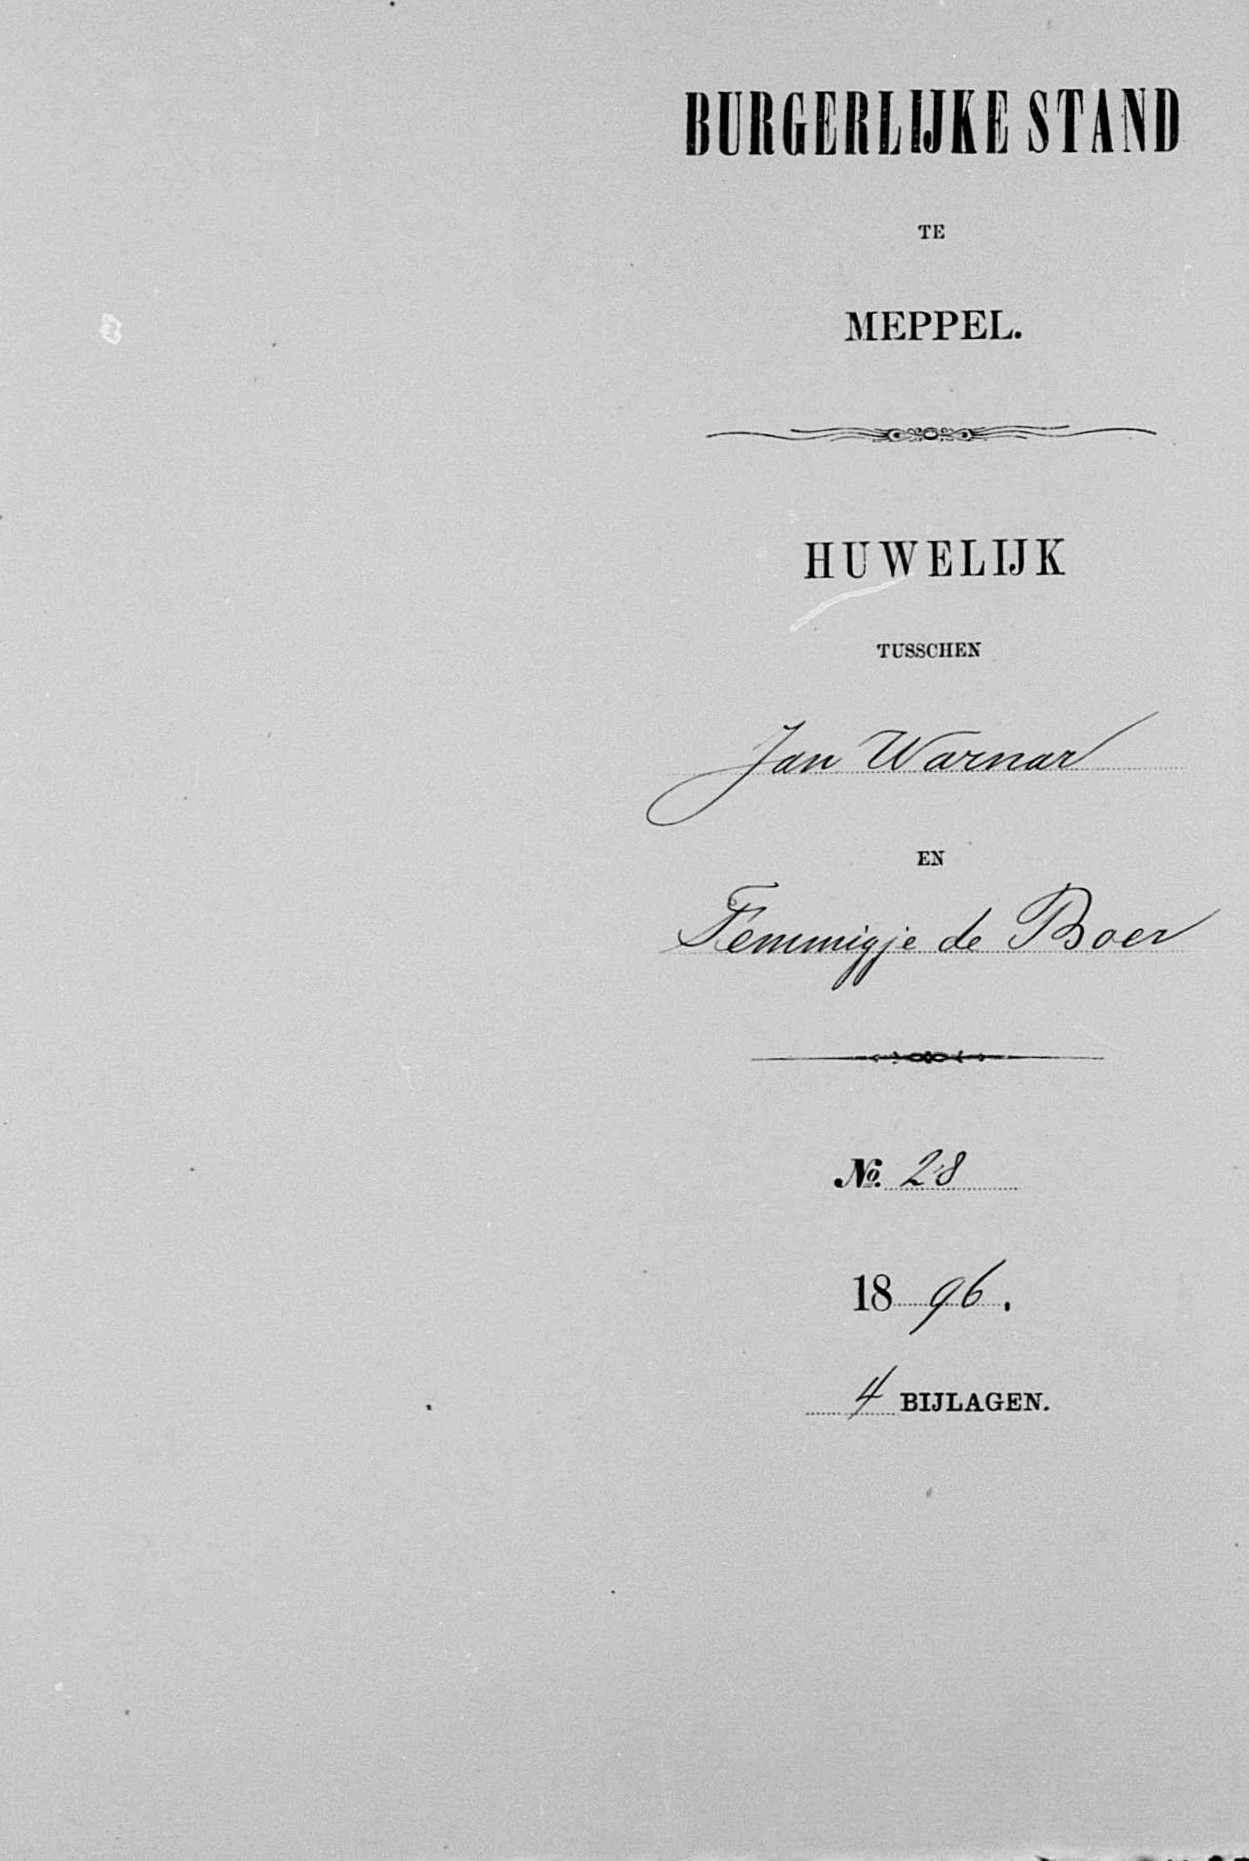 BURGERLIJKE STAND
TE
MEPPEL.
HUWELIJK
TUSSCHEN
Jan Warnar
EN
Femmigje de Boer
No. 28
1896.
4 BIJLAGEN.